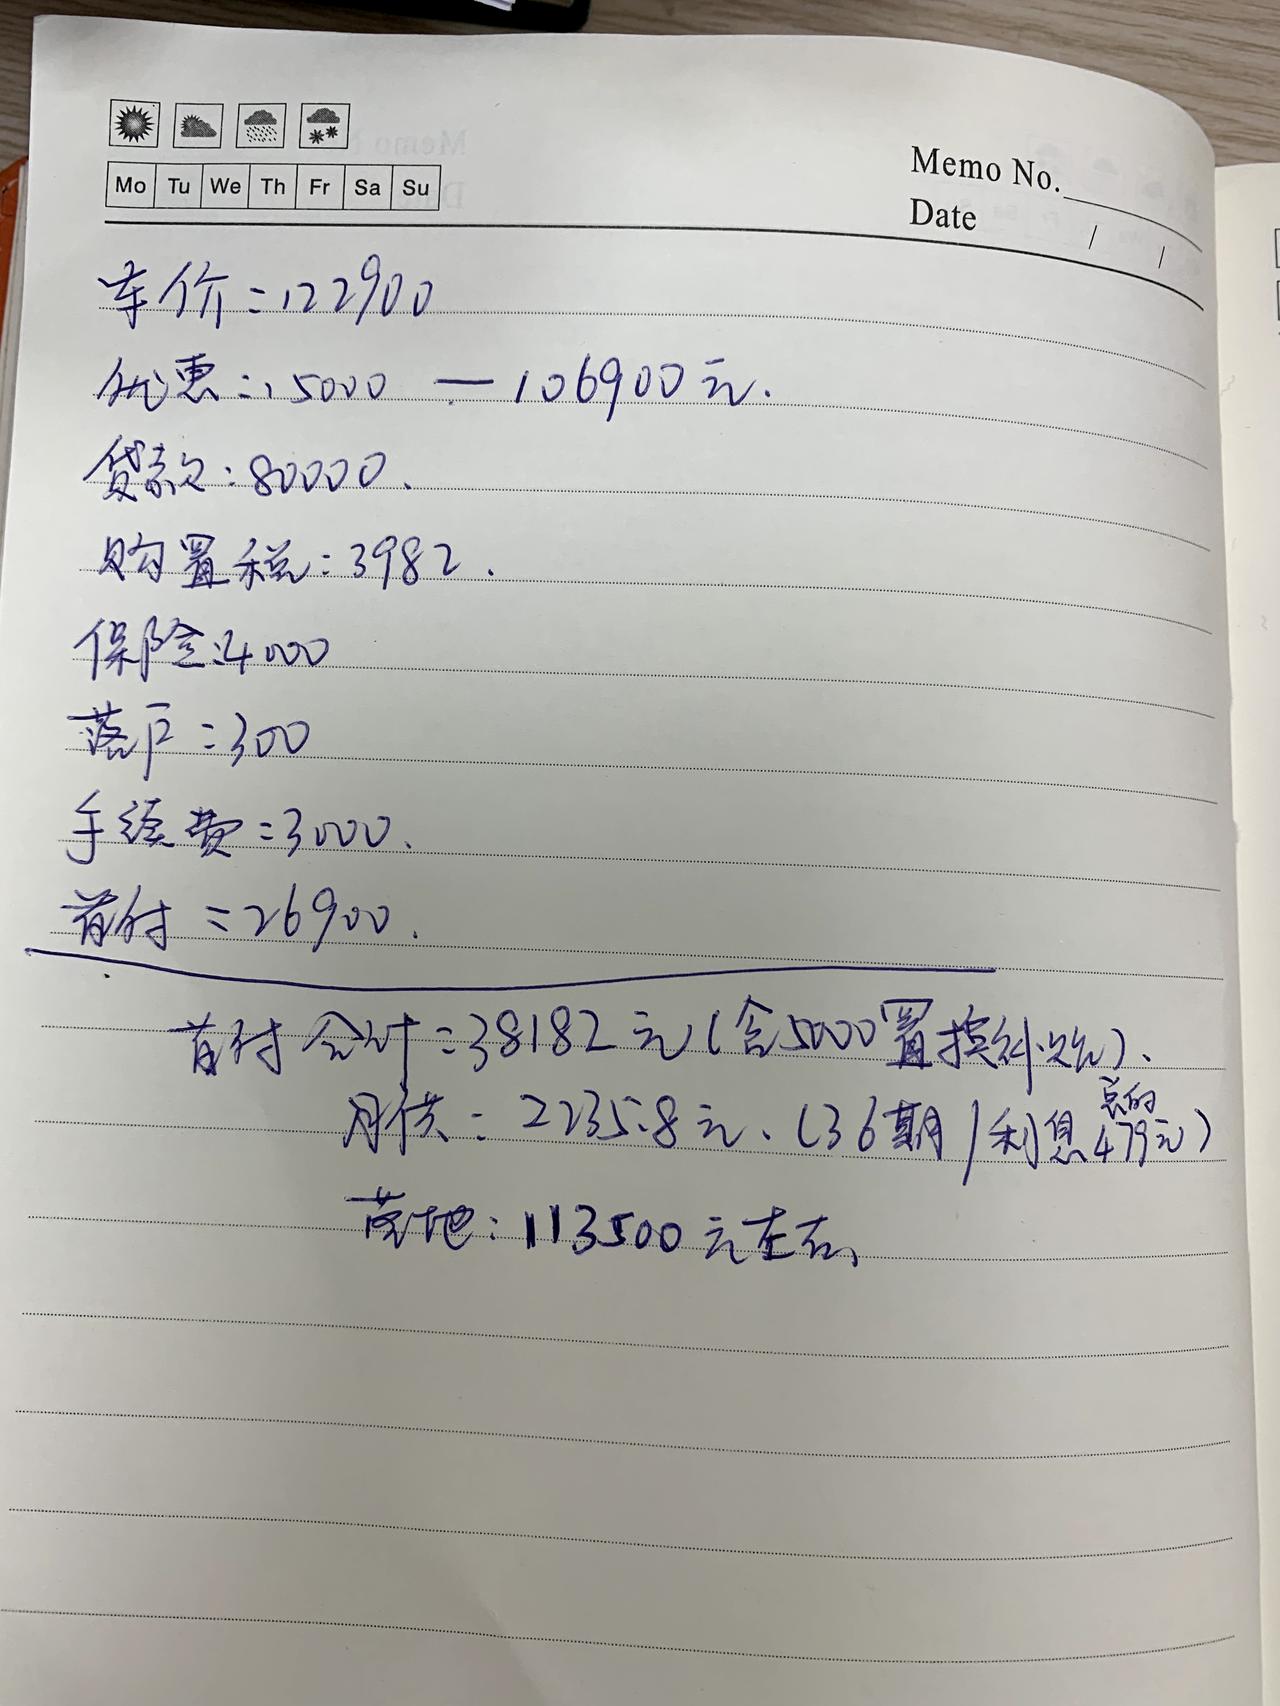 Mo Tu We Th Fr Sa Su
Memo No.
Date / /
车价:122900
优惠:15000 — 106900元.
贷款:80000.
购置税:3982.
保险:4000
落户:300
手续费:3000.
首付:26900.
首付合计:38182元(含5000置换补贴).
月供:2235.8元、(36期/利息总的479元)
落地:113500元左右、